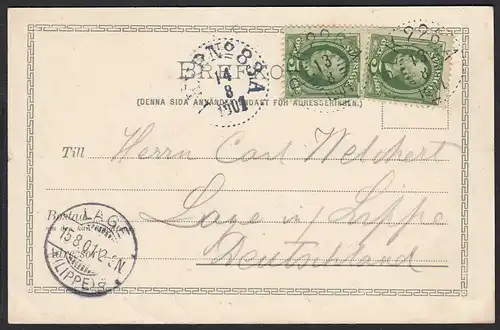 BREFKORT
(DENNA SIDA ANVÄNDES ENDAST FÖR ADRESSERINGEN.)
No 83 A
14
8
1901
Till Herrn Carl Welchert
Bostad Lage i/ Lippe
Deutschland
LAGE
15.8.01
(LIPPE)